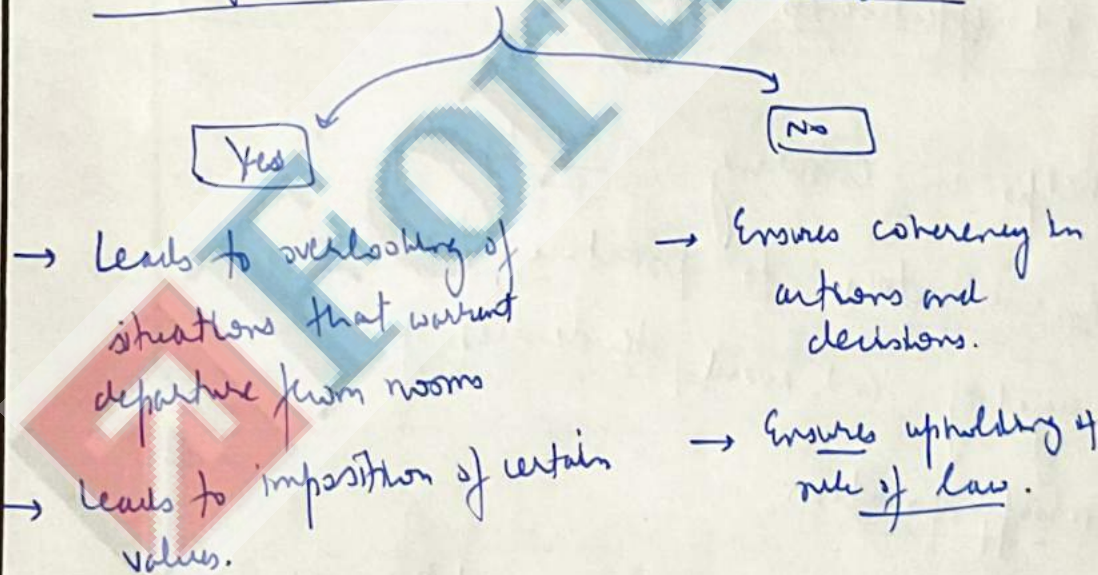 Yes
→ Leads to overlooking of
situations that warrant
departure from norms
→ Leads to imposition of certain
values.
No
→ Ensures coherency in
actions and
decisions.
→ Ensures upholding of
rule of law.
For